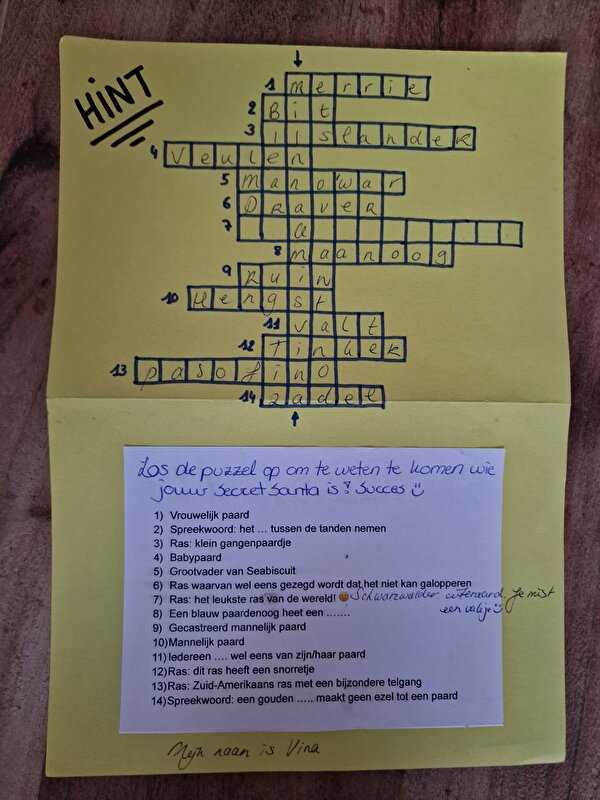 HINT
1 merrie
2 Bit
3 IJslander
4 Veulen
5 Manowar
6 Draver
7 a
8 maanoog
9 Ruin
10 Hengst
11 valt
12 Tinker
13 pasofino
14 zadel
Los de puzzel op om te weten te komen wie
jouw secret santa is! Succes
1) Vrouwelijk paard
2) Spreekwoord: het … tussen de tanden nemen
3) Ras: klein gangenpaardje
4) Babypaard
5) Grootvader van Seabiscuit
6) Ras waarvan wel eens gezegd wordt dat het niet kan galopperen
7) Ras: het leukste ras van de wereld! Schwarzwalder uiteraard. Je mist
een vakje
8) Een blauw paardenoog heet een …….
9) Gecastreerd mannelijk paard
10) Mannelijk paard
11) Iedereen …. wel eens van zijn/haar paard
12) Ras: dit ras heeft een snorretje
13) Ras: Zuid-Amerikaans ras met een bijzondere telgang
14) Spreekwoord: een gouden ….. maakt geen ezel tot een paard
Mijn naam is Vina